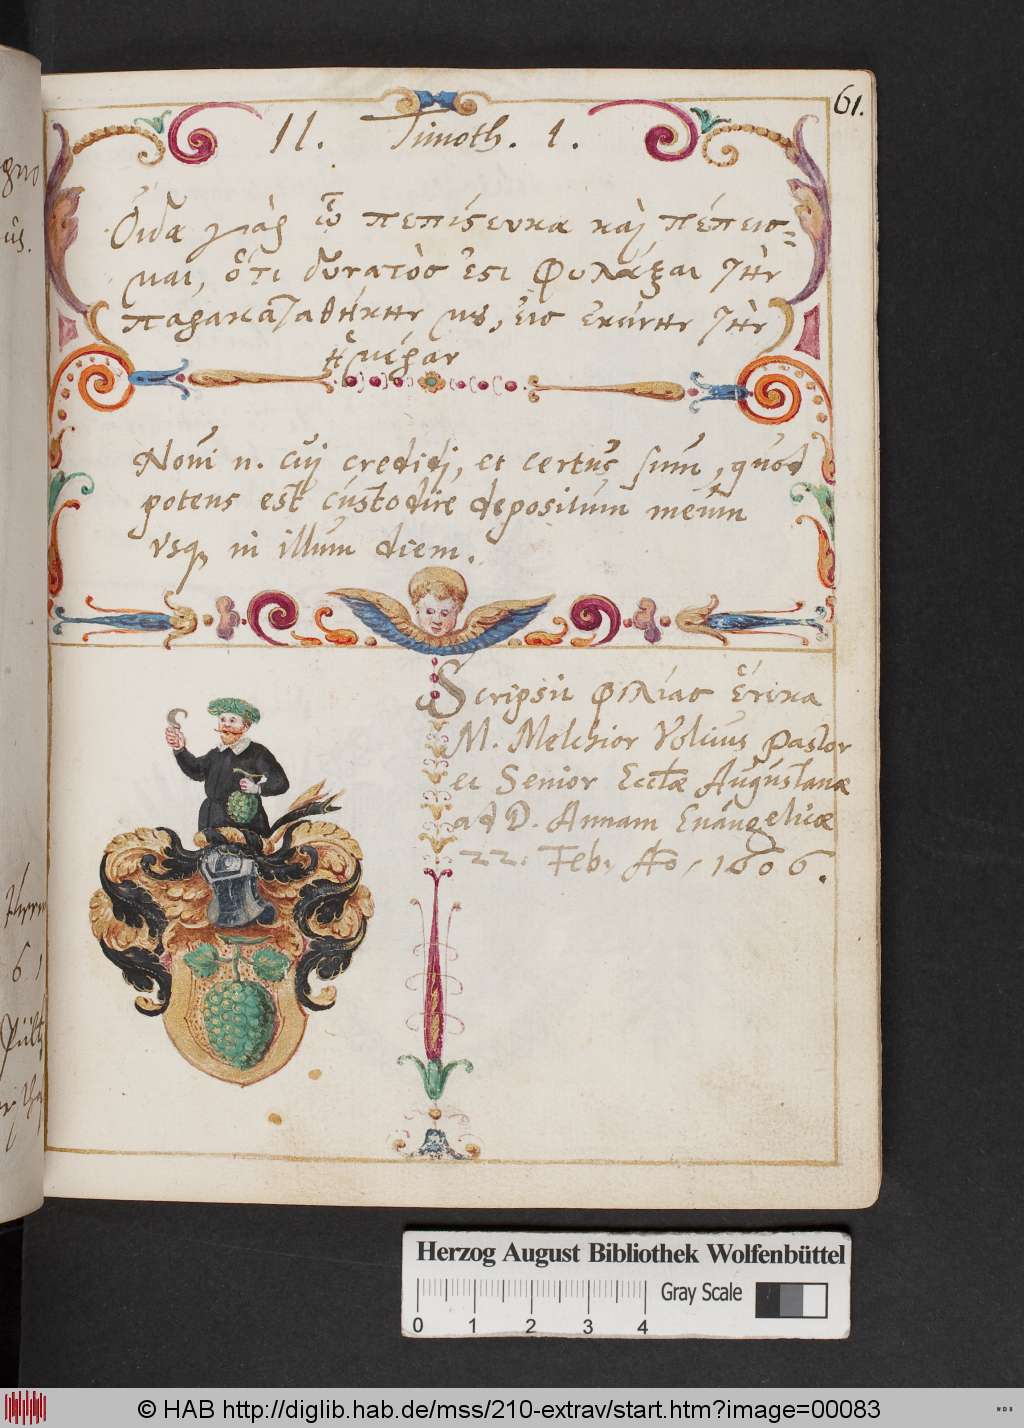 61.
II. Timoth. 1.
Οἶδα γὰρ ᾧ πεπίϛευκα καὶ πέπεισ=
μαι, ὅτι δυνατὸς ἐϛι φυλάξαι τὴν
παρακαταθήκην μȣ, εἰς ἐκείνην τὴν
ἡμέραν
Novi n. cuj credidj, et certus sum, quod
potens est custodire depositum meum
vsq in illum diem.
Scripsit φιλίας ἕνεκα
M. Melchior Volcius Pastor
et Senior Eccłæ Augustanæ
ad D. Annam Euangelicæ
22. Feb. Ao. 1606.
Herzog August Bibliothek Wolfenbüttel
Gray Scale
0 1 2 3 4
© HAB http://diglib.hab.de/mss/210-extrav/start.htm?image=00083